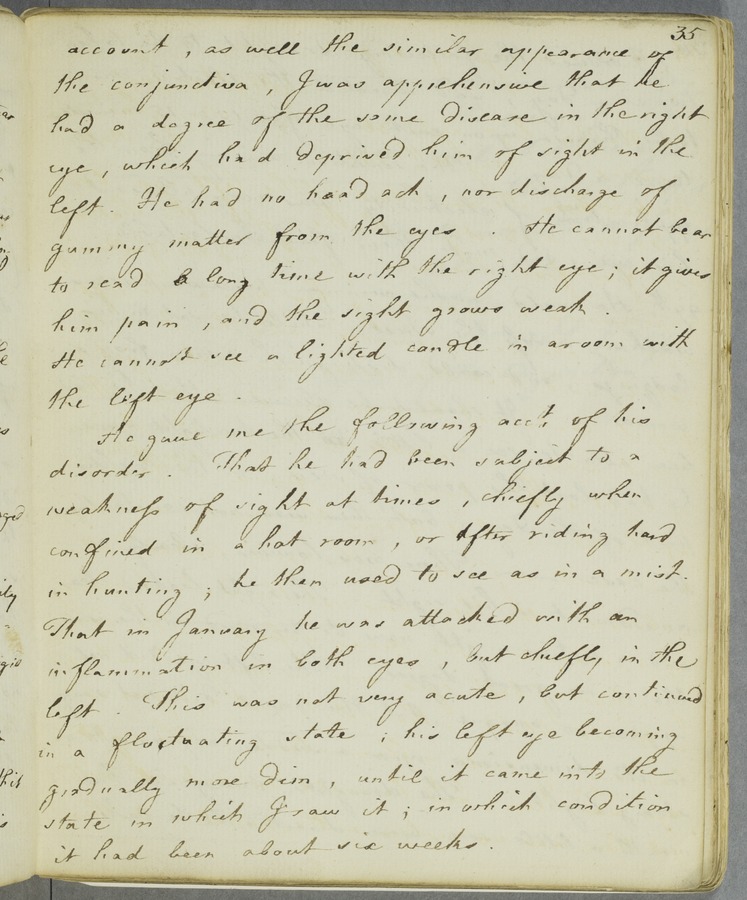 35
account, as well the similar appearance of
the conjunctiva, I was apprehensive that he
had a degree of the same disease in the right
eye, which had deprived him of sight in the
left. He had no head ach, nor discharge of
gummy matter from the eyes. He cannot bear
to read a long time with the right eye; it gives
him pain, and the sight grows weak.
He cannot see a lighted candle in a room with
the left eye.
He gave me the following acct. of his
disorder. That he had been subject to a
weakness of sight at times, chiefly when
confined in a hot room, or after riding hard
in hunting; he then used to see as in a mist.
That in January he was attacked with an
inflammation in both eyes, but chiefly in the
left. This was not very acute, but continued
in a fluctuating state; his left eye becoming
gradually more dim, until it came into the
state in which I saw it; in which condition
it had been about six weeks.